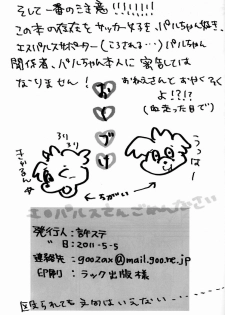 そして一番のご注意!!!!!!!
この本の存在をサッカー好き、パルちゃん好き、
エスパルスサポーター(ころされる…)パルちゃん
関係者、パルちゃん本人に密告しては
なりません!
おねえさんとおやくそく
よ!?!?
(血走った目で)
おしまい
うっはー
エスパルスさんごめんなさい
発行人:許ステ
〃 日:2011-5-5
連絡先:goozax@mail.goo.ne.jp
印刷:ラック出版様
殴られても文句はいえない………